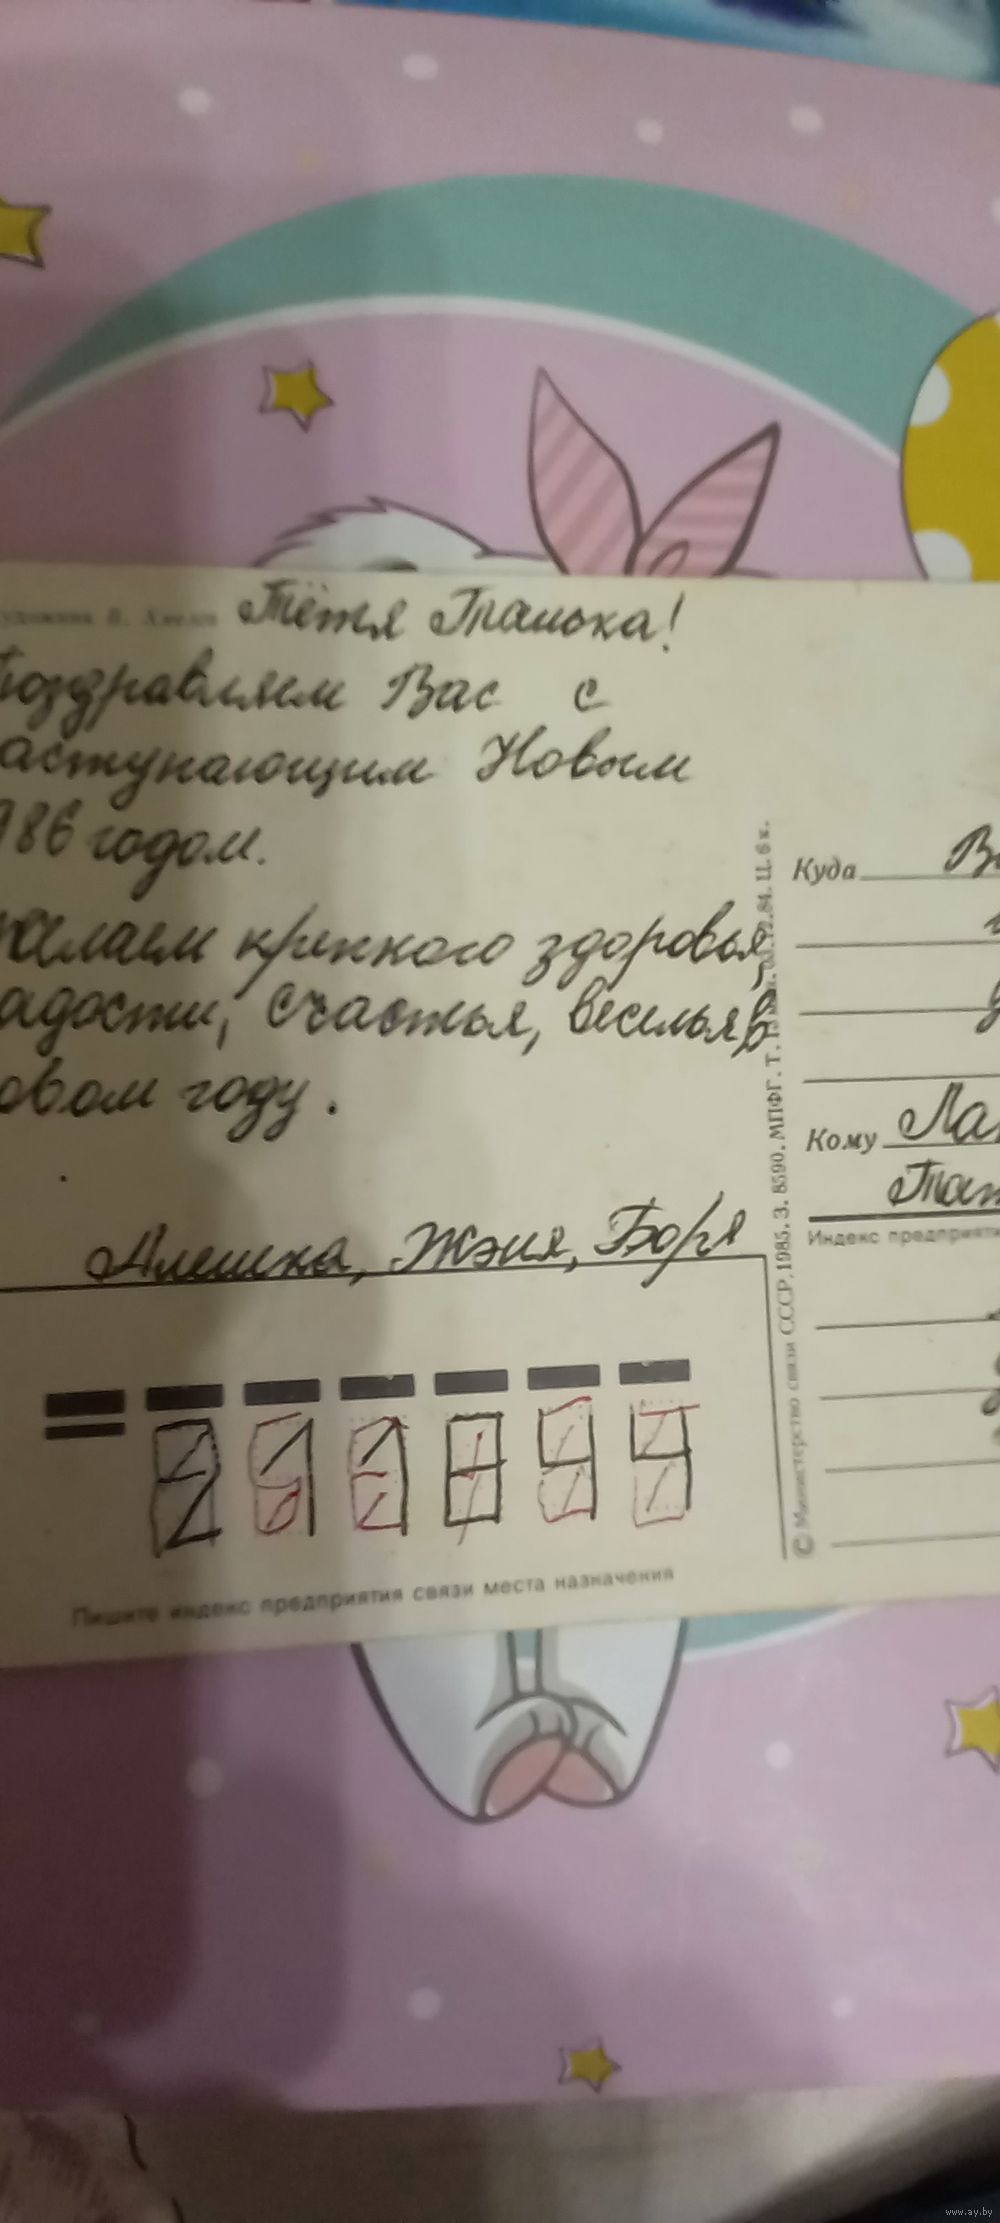 удожник В. Хмелев
Тётя Транька!
Поздравляем Вас с
аступающим Новым
986 годом.
желаем крепкого здоровья,
адости, счастья, веселья в
овом году.
Алешка, Жэня, Боря
Куда
Кому Ла
Тат
Индекс предприяти
© Министерство связи СССР, 1985. З. 8590. МПФГ. Т. 12.84. Ц. 6 к.
Пишите индекс предприятия связи места назначения
www.ay.by